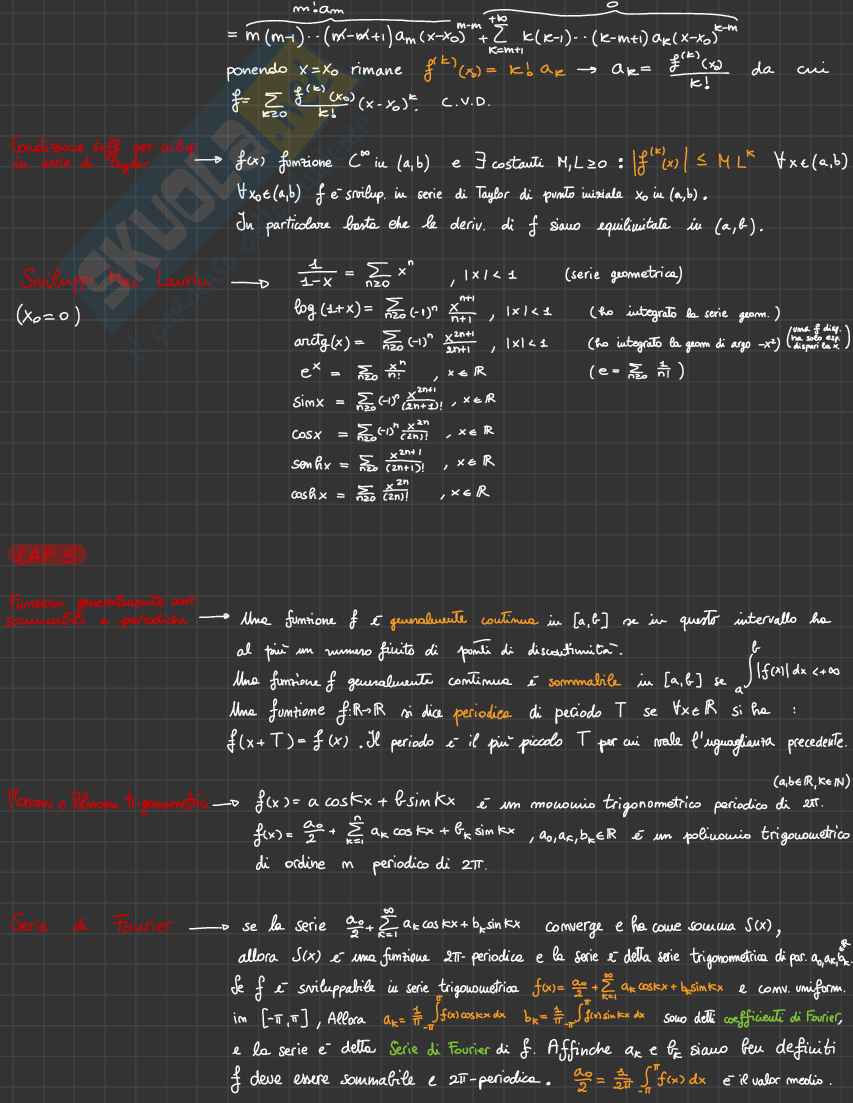 m! a_m 0
= m(m-1)··(m-m+1) a_m (x-x₀)^{m-m} + ∑_{k=m+1}^{+∞} k(k-1)··(k-m+1) a_k (x-x₀)^{k-m}
ponendo x=x₀ rimane f^{(k)}(x₀) = k! a_k → a_k = f^{(k)}(x₀)/k! da cui
f = ∑_{k≥0} f^{(k)}(x₀)/k! (x-x₀)^k. C.V.D.
Condizione suff. per svilup.
in serie di Taylor → f(x) funzione C^∞ in (a,b) e ∃ costanti M,L≥0 : |f^{(k)}(x)| ≤ M L^k ∀x∈(a,b)
∀x₀∈(a,b) f e' svilup. in serie di Taylor di punto iniziale x₀ in (a,b).
In particolare basta che le deriv. di f siano equilimitate in (a,b).
Sviluppi Mac Laurin → 1/(1-x) = ∑_{n≥0} x^n , |x|<1 (serie geometrica)
(x₀=0) log(1+x) = ∑_{n≥0} (-1)^n x^{n+1}/(n+1) , |x|<1 (ho integrato la serie geom.)
arctg(x) = ∑_{n≥0} (-1)^n x^{2n+1}/(2n+1) , |x|<1 (ho integrato la geom di argo -x²) (una f disp. ha solo esp. dispari la x)
e^x = ∑_{n≥0} x^n/n! , x∈ℝ (e = ∑_{n≥0} 1/n!)
sinx = ∑_{n≥0} (-1)^n x^{2n+1}/(2n+1)! , x∈ℝ
cosx = ∑_{n≥0} (-1)^n x^{2n}/(2n)! , x∈ℝ
senhx = ∑_{n≥0} x^{2n+1}/(2n+1)! , x∈ℝ
coshx = ∑_{n≥0} x^{2n}/(2n)! , x∈ℝ
Funzioni generalmente cont.
sommabili e periodiche → Una funzione f e' generalmente continua in [a,b] se in questo intervallo ha
al piu' un numero finito di punti di discontinuita'.
Una funzione f generalmente continua e' sommabile in [a,b] se ∫_a^b |f(x)| dx < +∞
Una funzione f:ℝ→ℝ si dice periodica di periodo T se ∀x∈ℝ si ha :
f(x+T) = f(x). Il periodo e' il piu' piccolo T per cui vale l'uguaglianza precedente.
(a,b∈ℝ, k∈ℕ)
→ f(x) = a coskx + b sinkx e' un monomio trigonometrico periodico di 2π.
f(x) = a₀/2 + ∑_{k=1}^{n} a_k coskx + b_k sinkx , a₀,a_k,b_k∈ℝ e' un polinomio trigonometrico
di ordine n periodico di 2π.
Serie di Fourier → se la serie a₀/2 + ∑_{k=1}^{∞} a_k coskx + b_k sinkx converge e ha come somma S(x),
allora S(x) e' una funzione 2π-periodica e la serie e' detta serie trigonometrica di par. a₀,a_k,b_k.
Se f e' sviluppabile in serie trigonometrica f(x) = a₀/2 + ∑_{k=1}^{∞} a_k coskx + b_k sinkx e conv. uniform.
in [-π,π], Allora a_k = 1/π ∫_{-π}^{π} f(x) coskx dx b_k = 1/π ∫_{-π}^{π} f(x) sinkx dx sono detti coefficienti di Fourier,
e la serie e' detta Serie di Fourier di f. Affinche' a_k e b_k siano ben definiti
f deve essere sommabile e 2π-periodica. a₀/2 = 1/2π ∫_{-π}^{π} f(x) dx e' il valor medio.
SKUOLA.net